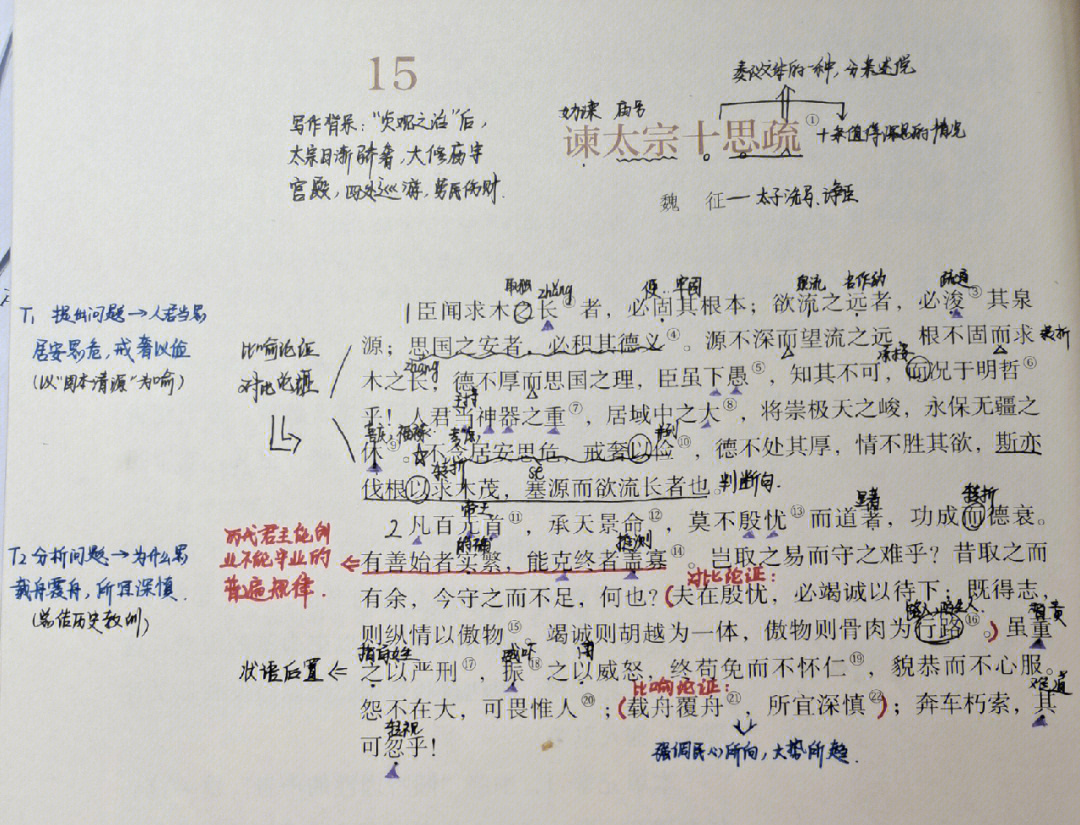 15
奏议文体的一种,分条述说
写作背景:“贞观之治”后,
太宗日渐骄奢,大修庙宇
宫殿,四处巡游,劳民伤财.
劝谏 庙号
谏太宗十思疏①
十条值得深思的情况
魏 征——太子洗马、谏臣
取独 zhǎng 使…牢固 泉流 名作动 疏通
1臣闻求木之长②者,必固其根本;欲流之远者,必浚③其泉
源;思国之安者,必积其德义④。源不深而望流之远,根不固而求
转折
zhǎng
木之长,德不厚而思国之理,臣虽下愚⑤,知其不可,而况于明哲⑥
主持
乎!人君当神器之重⑦,居域中之大⑧,将崇极天之峻,永保无疆之
休⑨。不念居安思危,戒奢以俭⑩,德不处其厚,情不胜其欲,斯亦
转折 sè
伐根以求木茂,塞源而欲流长者也。
判断句.
T1 提出问题→人君当思
居安思危,戒奢以俭
(以“固本清源”为喻)
比喻论证
对比论证
帝王 显著 转折
2凡百元首⑪,承天景命⑫,莫不殷忧⑬而道著,功成而德衰。
的确 推测
有善始者实繁,能克终者盖寡⑭。岂取之易而守之难乎?昔取之而
对比论证:
有余,今守之而不足,何也?(夫在殷忧,必竭诚以待下;既得志,
则纵情以傲物⑮。竭诚则胡越为一体,傲物则骨肉为行路⑯。)虽董
督责
指百姓 威吓 用
之以严刑⑰,振⑱之以威怒,终苟免而不怀仁⑲,貌恭而不心服。
比喻论证: 难道
怨不在大,可畏惟人⑳;(载舟覆舟㉑,所宜深慎㉒);奔车朽索,其
轻视
可忽乎!
强调民心所向,大势所趋.
历代君主能创
业不能守业的
普遍规律.
T2 分析问题→为什么思
载舟覆舟,所宜深慎.
(总结历史教训)
状语后置